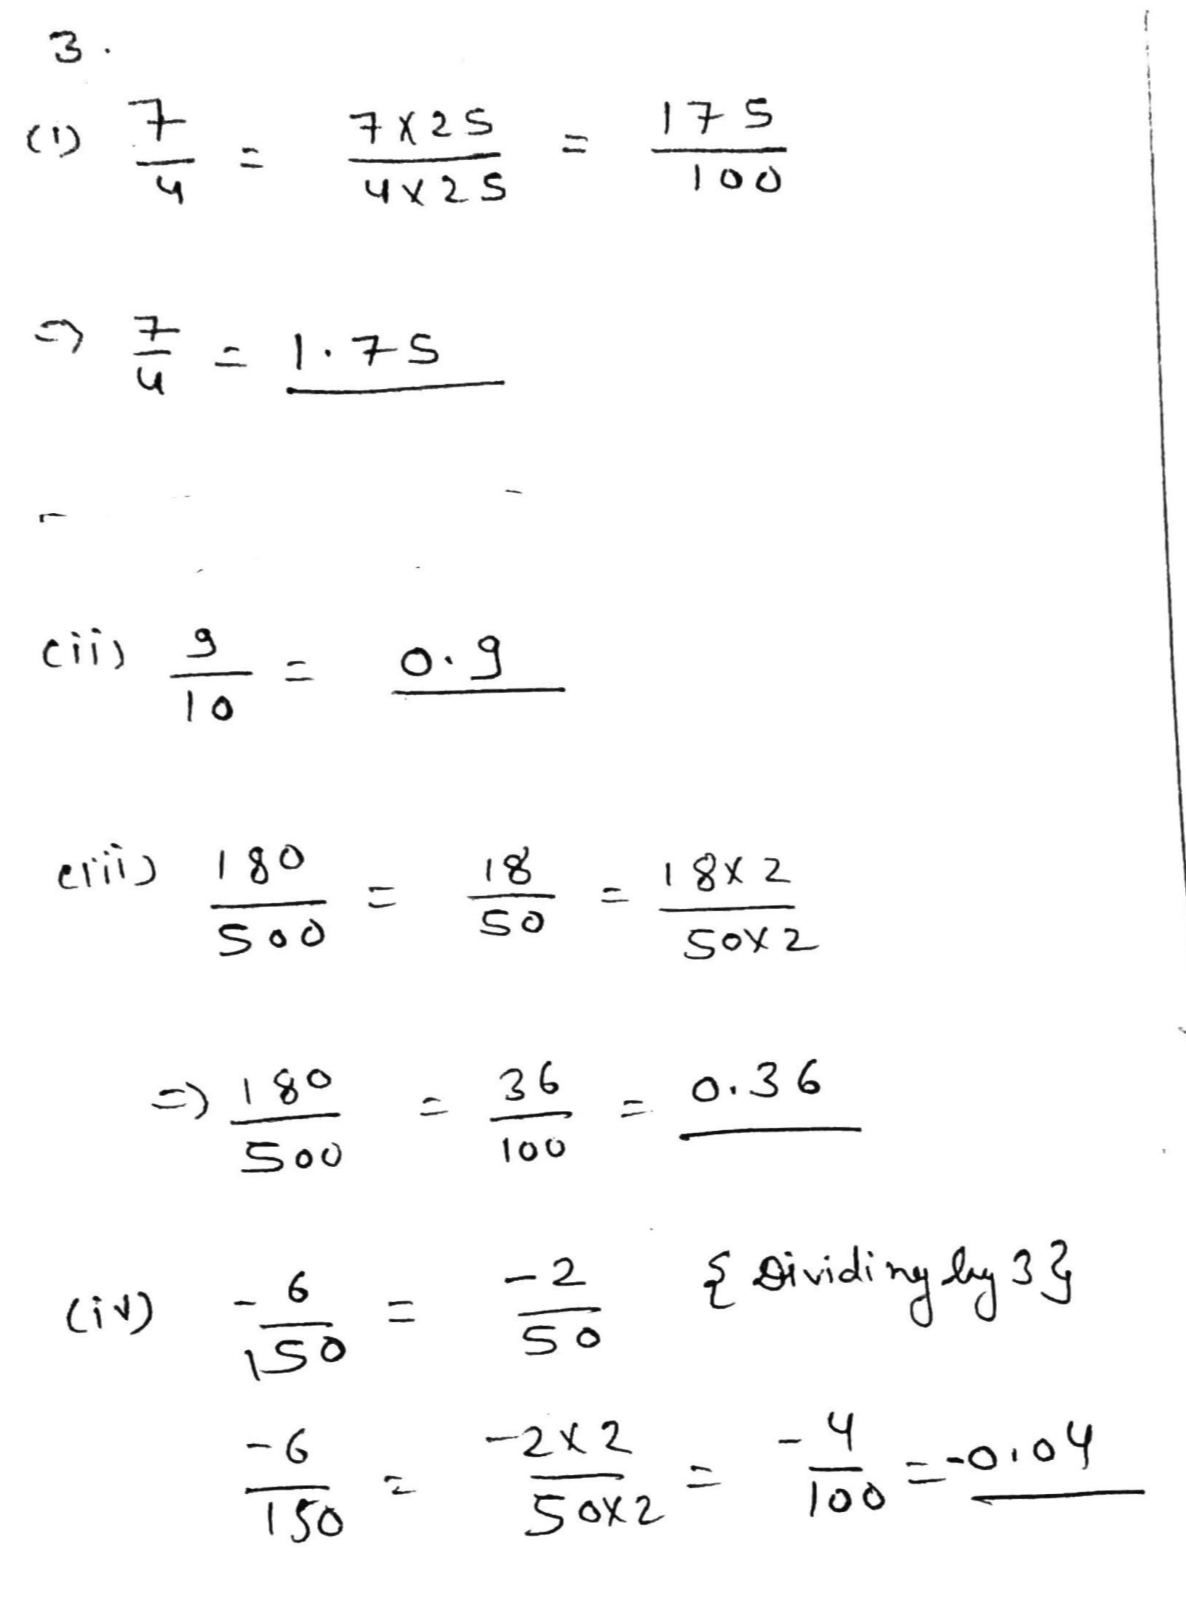 3.
(i) 7/4 = 7×25/4×25 = 175/100
=> 7/4 = 1.75
(ii) 9/10 = 0.9
(iii) 180/500 = 18/50 = 18×2/50×2
=> 180/500 = 36/100 = 0.36
(iv) -6/150 = -2/50 {Dividing by 3}
-6/150 = -2×2/50×2 = -4/100 = -0.04